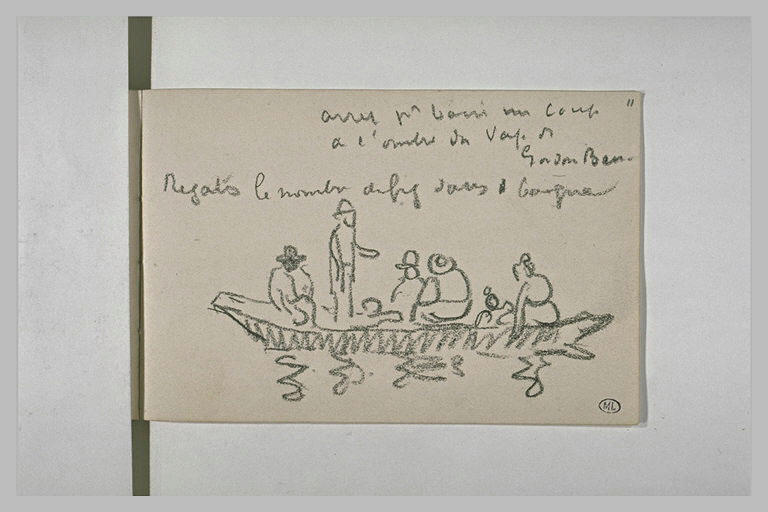 arret pr boire un coup "
à l'ombre du Vap. de
Gordon Ben.
Regates le nombre de fig dans barque
ML